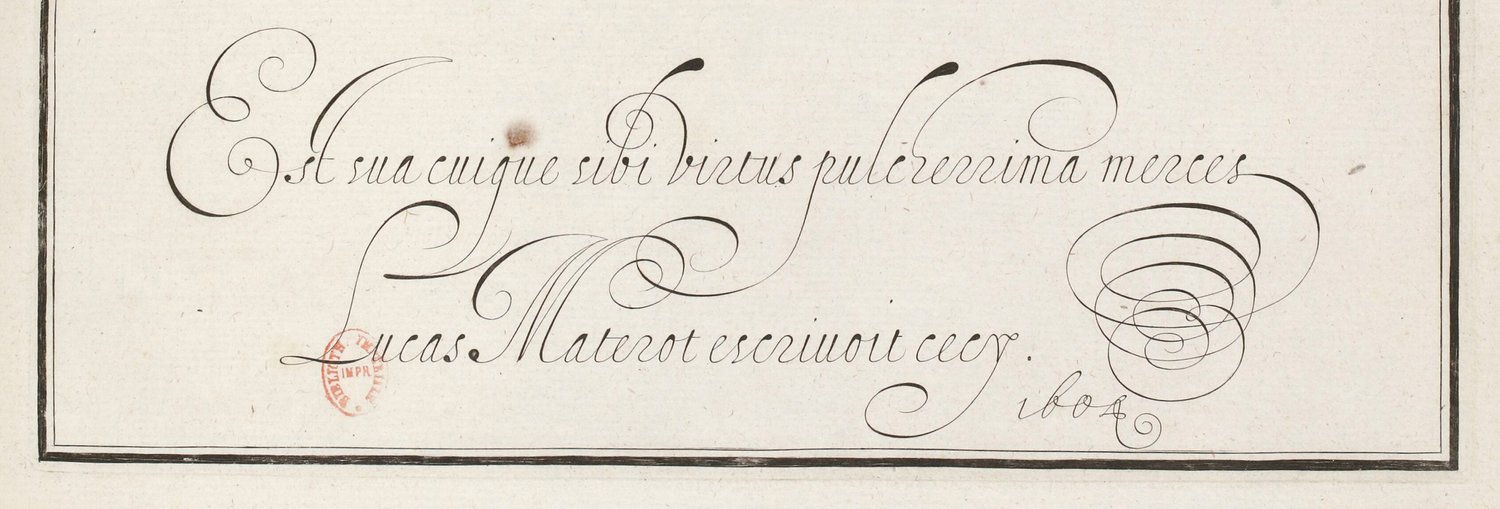 Est sua cuique sibi virtus pulcherrima merces
Lucas Materot escriuoit cecy.
1604
BIBLIOTH. IMPERIALE
IMPR.